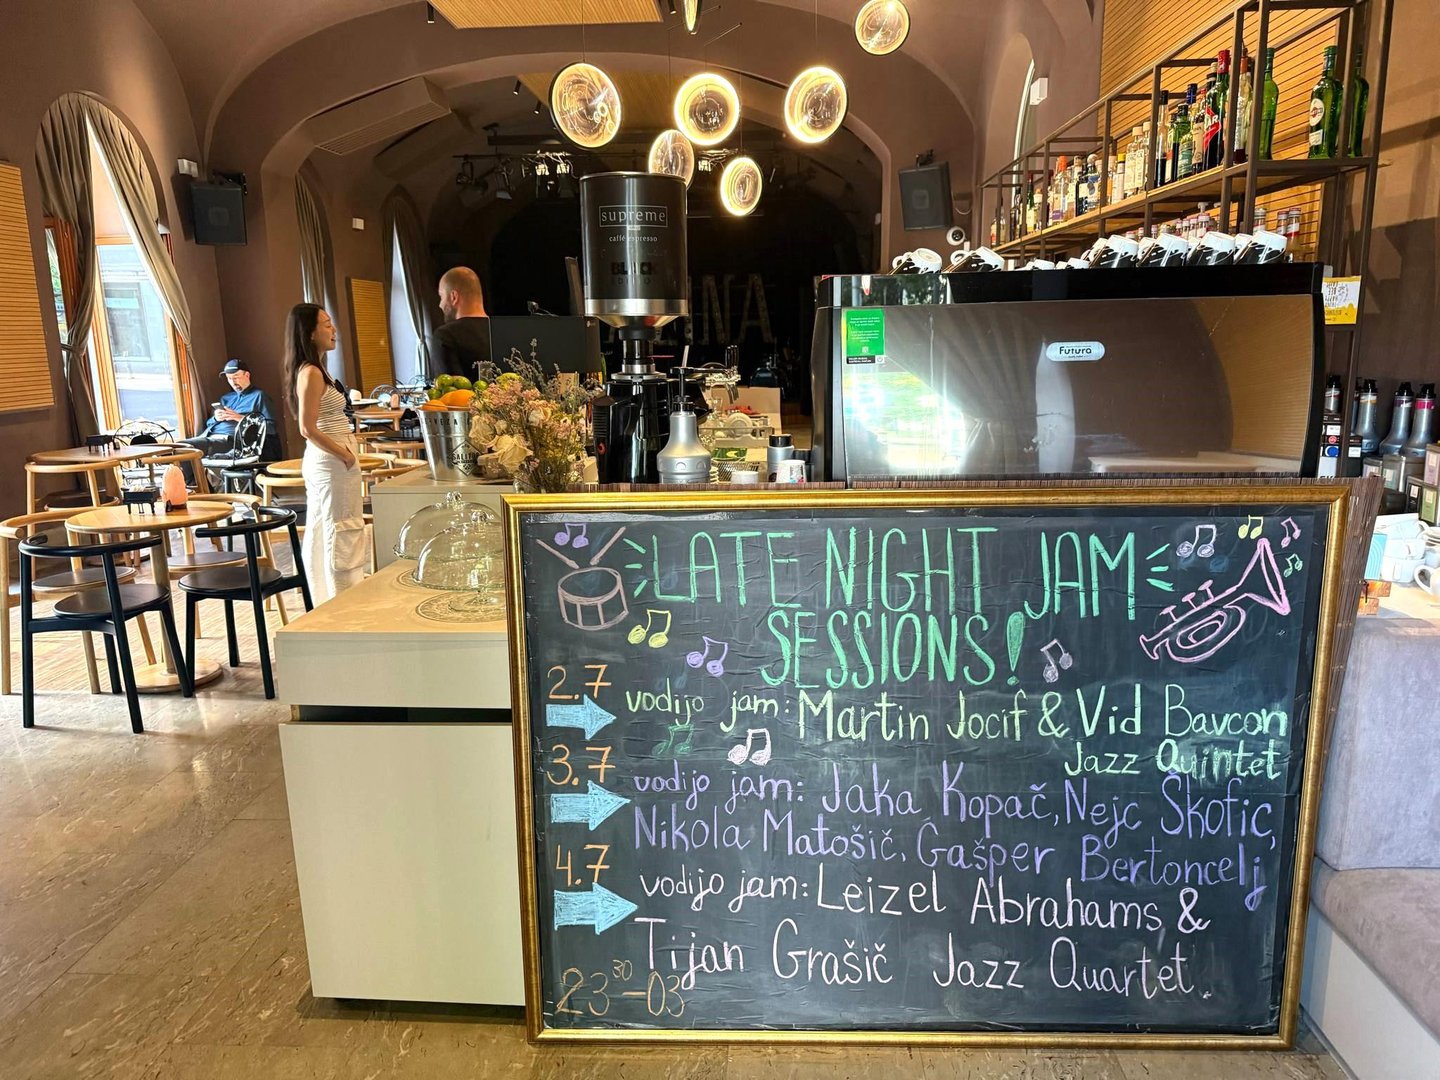 supreme
caffè espresso
BLACK
ENA
Futura
LATE NIGHT JAM
SESSIONS!
2.7
vodijo jam: Martin Jocif & Vid Bavcon
Jazz Quintet
3.7
vodijo jam: Jaka Kopač, Nejc Škofic,
Nikola Matošič, Gašper Bertoncelj
4.7
vodijo jam: Leizel Abrahams &
Tijan Grašič Jazz Quartet.
23³⁰-03